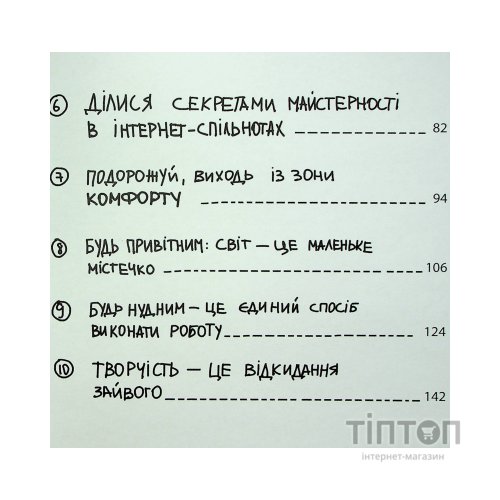 6 ДІЛИСЯ СЕКРЕТАМИ МАЙСТЕРНОСТІ
В ІНТЕРНЕТ-СПІЛЬНОТАХ 82
7 ПОДОРОЖУЙ, ВИХОДЬ ІЗ ЗОНИ
КОМФОРТУ 94
8 БУДЬ ПРИВІТНИМ: СВІТ — ЦЕ МАЛЕНЬКЕ
МІСТЕЧКО 106
9 БУДЬ НУДНИМ — ЦЕ ЄДИНИЙ СПОСІБ
ВИКОНАТИ РОБОТУ 124
10 ТВОРЧІСТЬ — ЦЕ ВІДКИДАННЯ
ЗАЙВОГО 142
ТІПТОП
інтернет-магазин